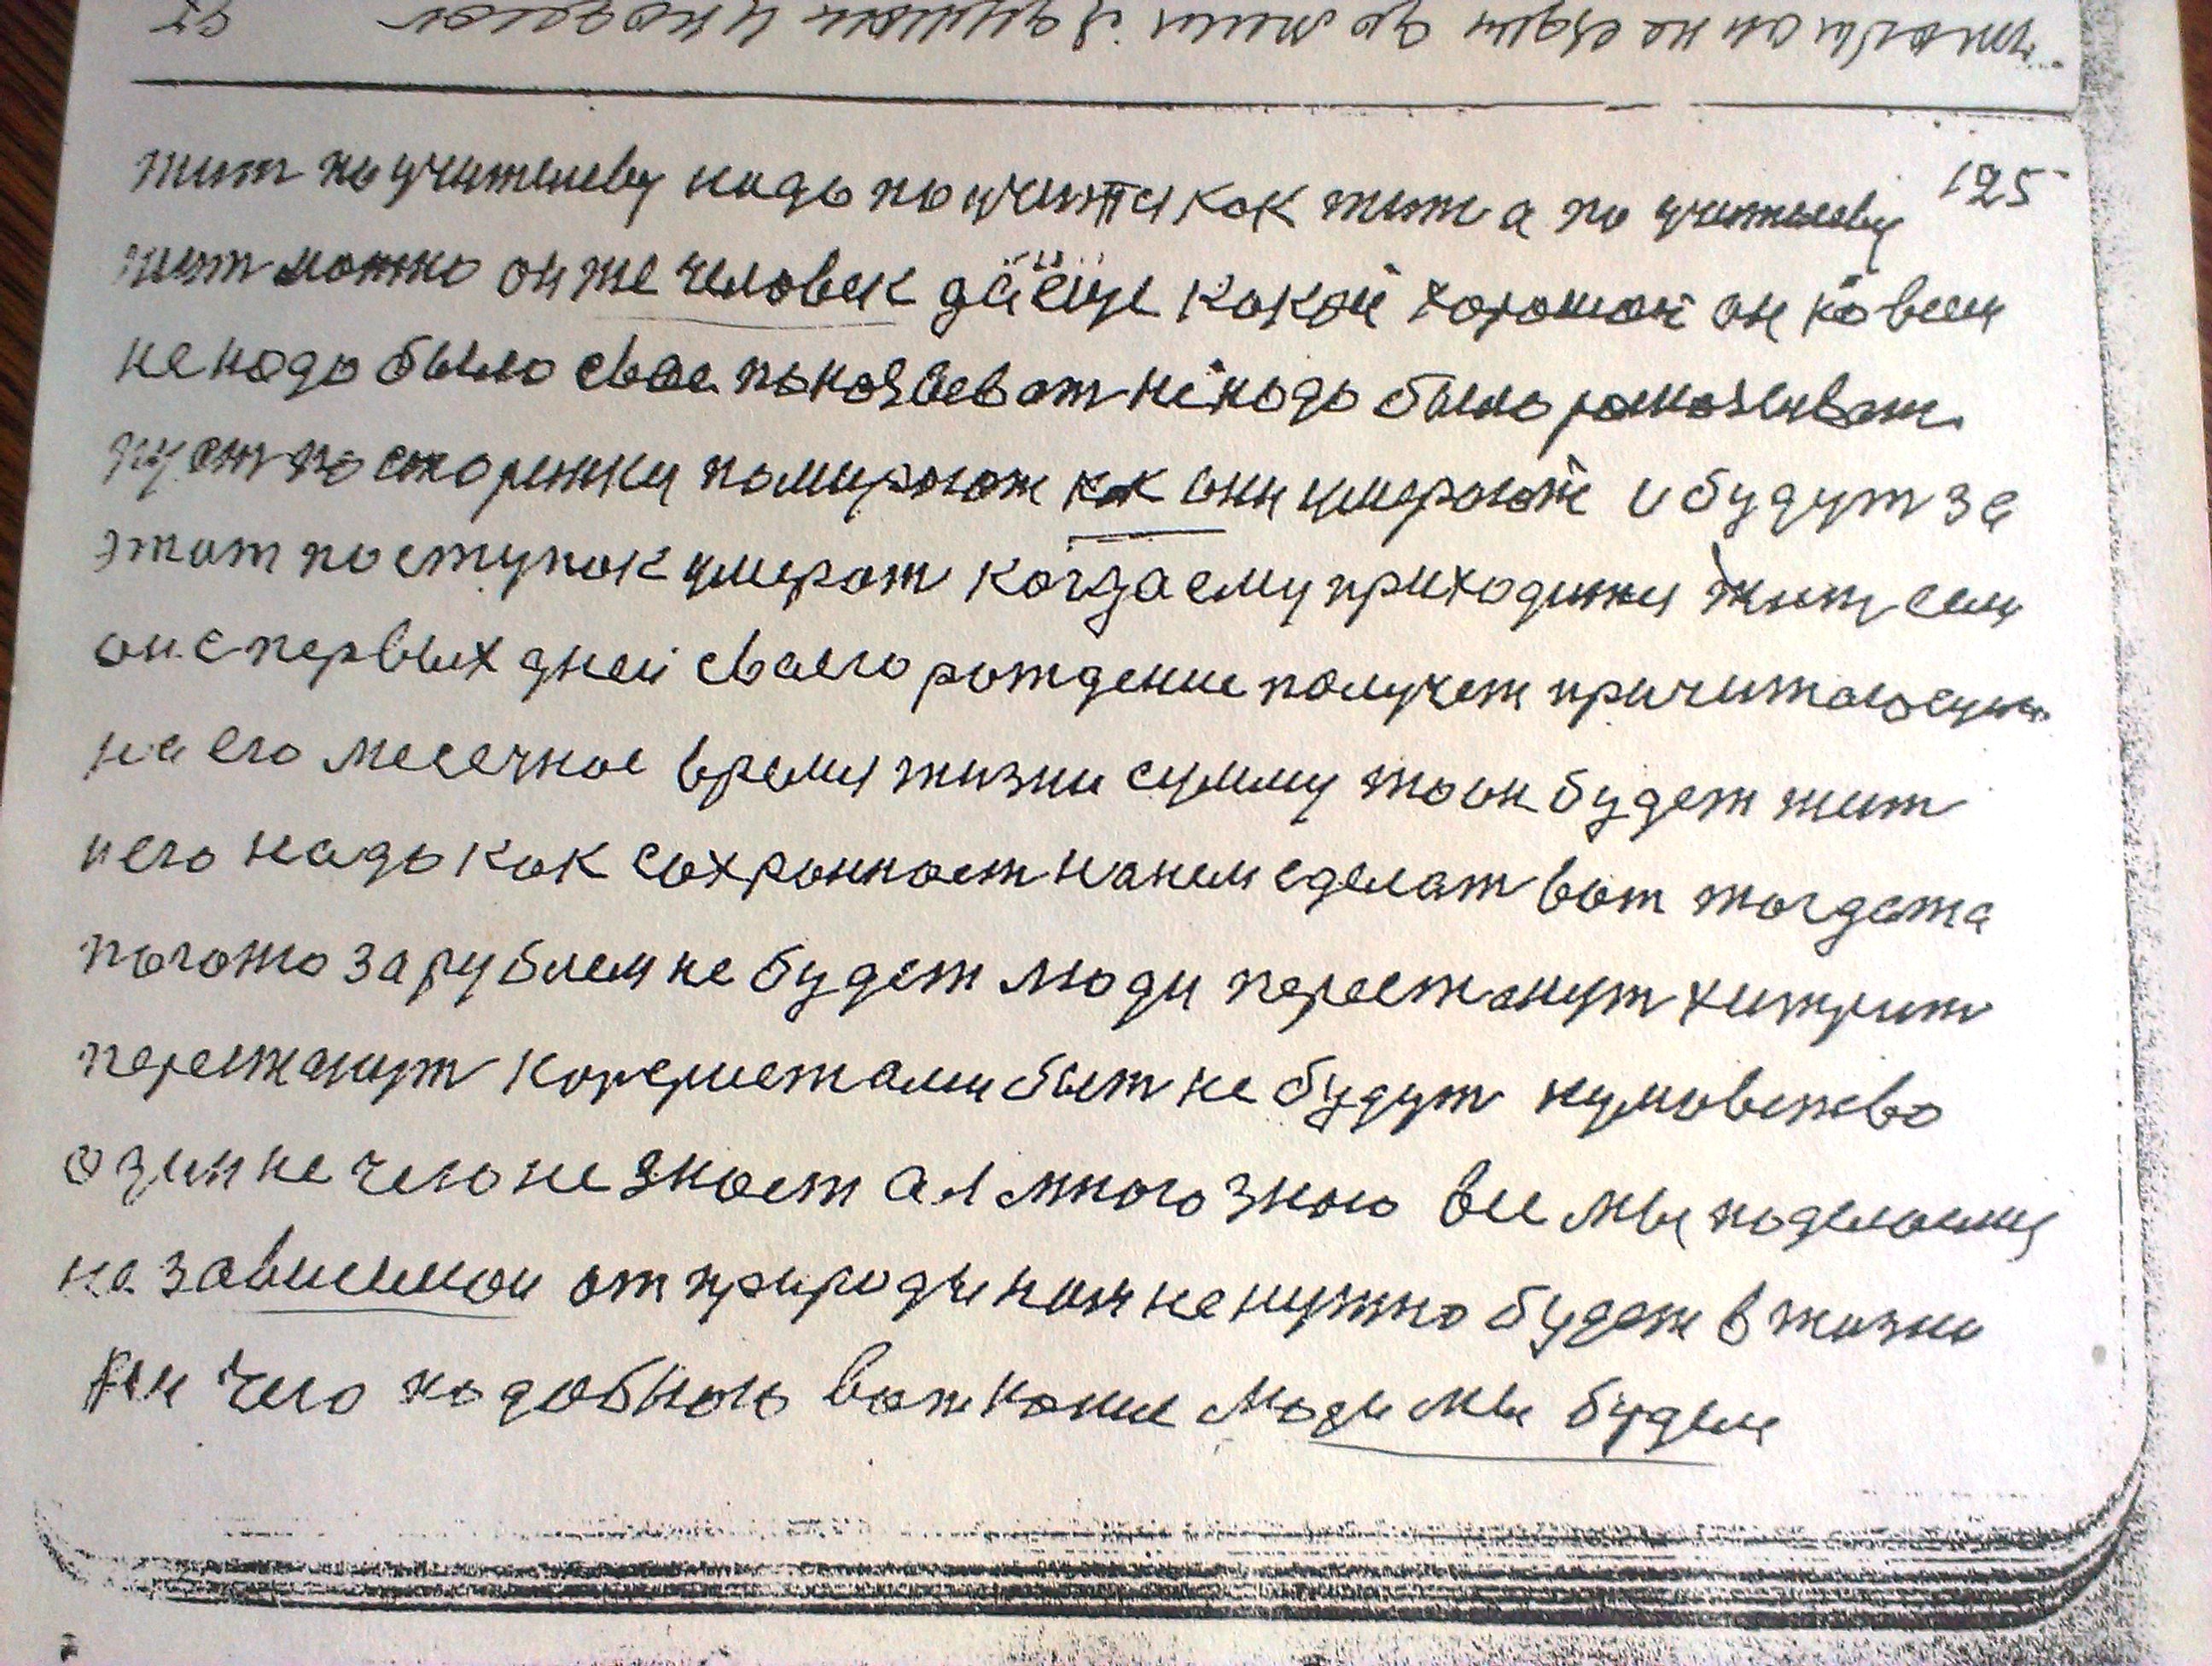 125
жит по учителеву надо поучится как жит а по учителеву
жит можно он же человек да еще какой хороший он ко всем
не надо было свое показоват не надо было розказыват
пуст по сторинки помирают как они умерают и будут за
этот поступок умерат когда ему приходится жит если
он с первых дней своего рождение получет причитающую
на его месечное время жизни сумму то он будет жит
него надо как сохранност на нем сделат вот тогдата
погоно за рублем не будет люди перестанут хитрит
перестанут корыстами быт не будут кумовство
один не чего не знает а я много знаю все мы поделаемы
незавиcимои от природы нам не нужно будет в жизни
не чего подобного вот какие люди мы будем